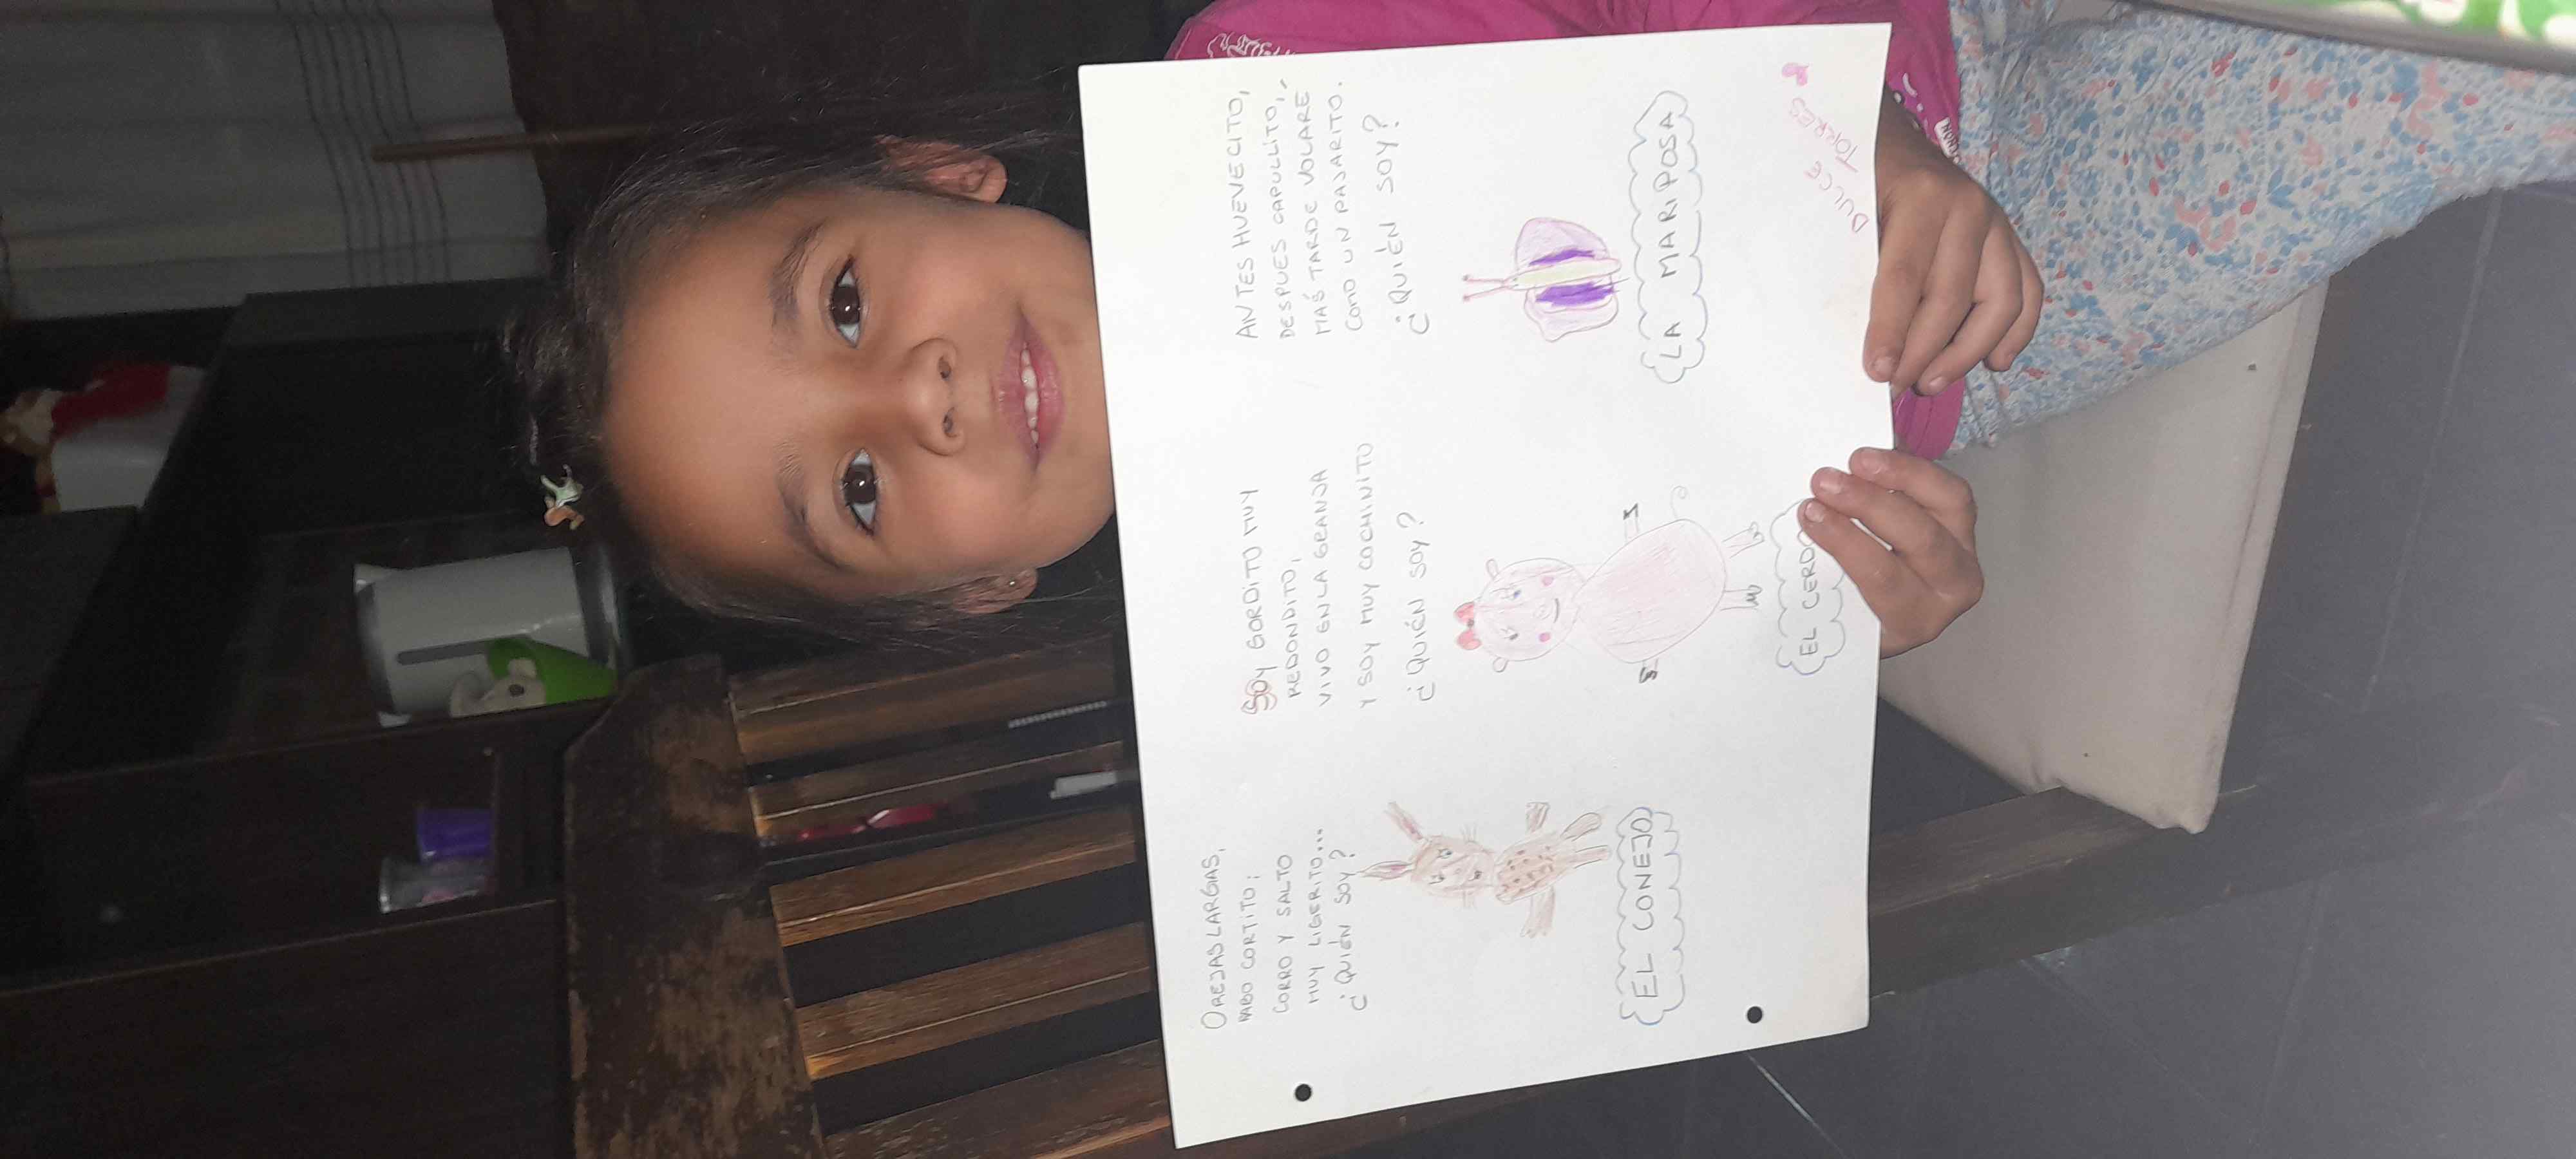 OREJAS LARGAS,
RABO CORTITO;
CORRO Y SALTO
MUY LIGERITO...
¿QUIÉN SOY?
EL CONEJO
SOY GORDITO MUY
REDONDITO,
VIVO EN LA GRANJA
Y SOY MUY COCHINITO
¿QUIÉN SOY?
EL CERDO
ANTES HUEVECITO,
DESPUES CAPULLITO,
MÁS TARDE VOLARE
COMO UN PAJARITO.
¿QUIÉN SOY?
LA MARIPOSA
DULCE
TORRES